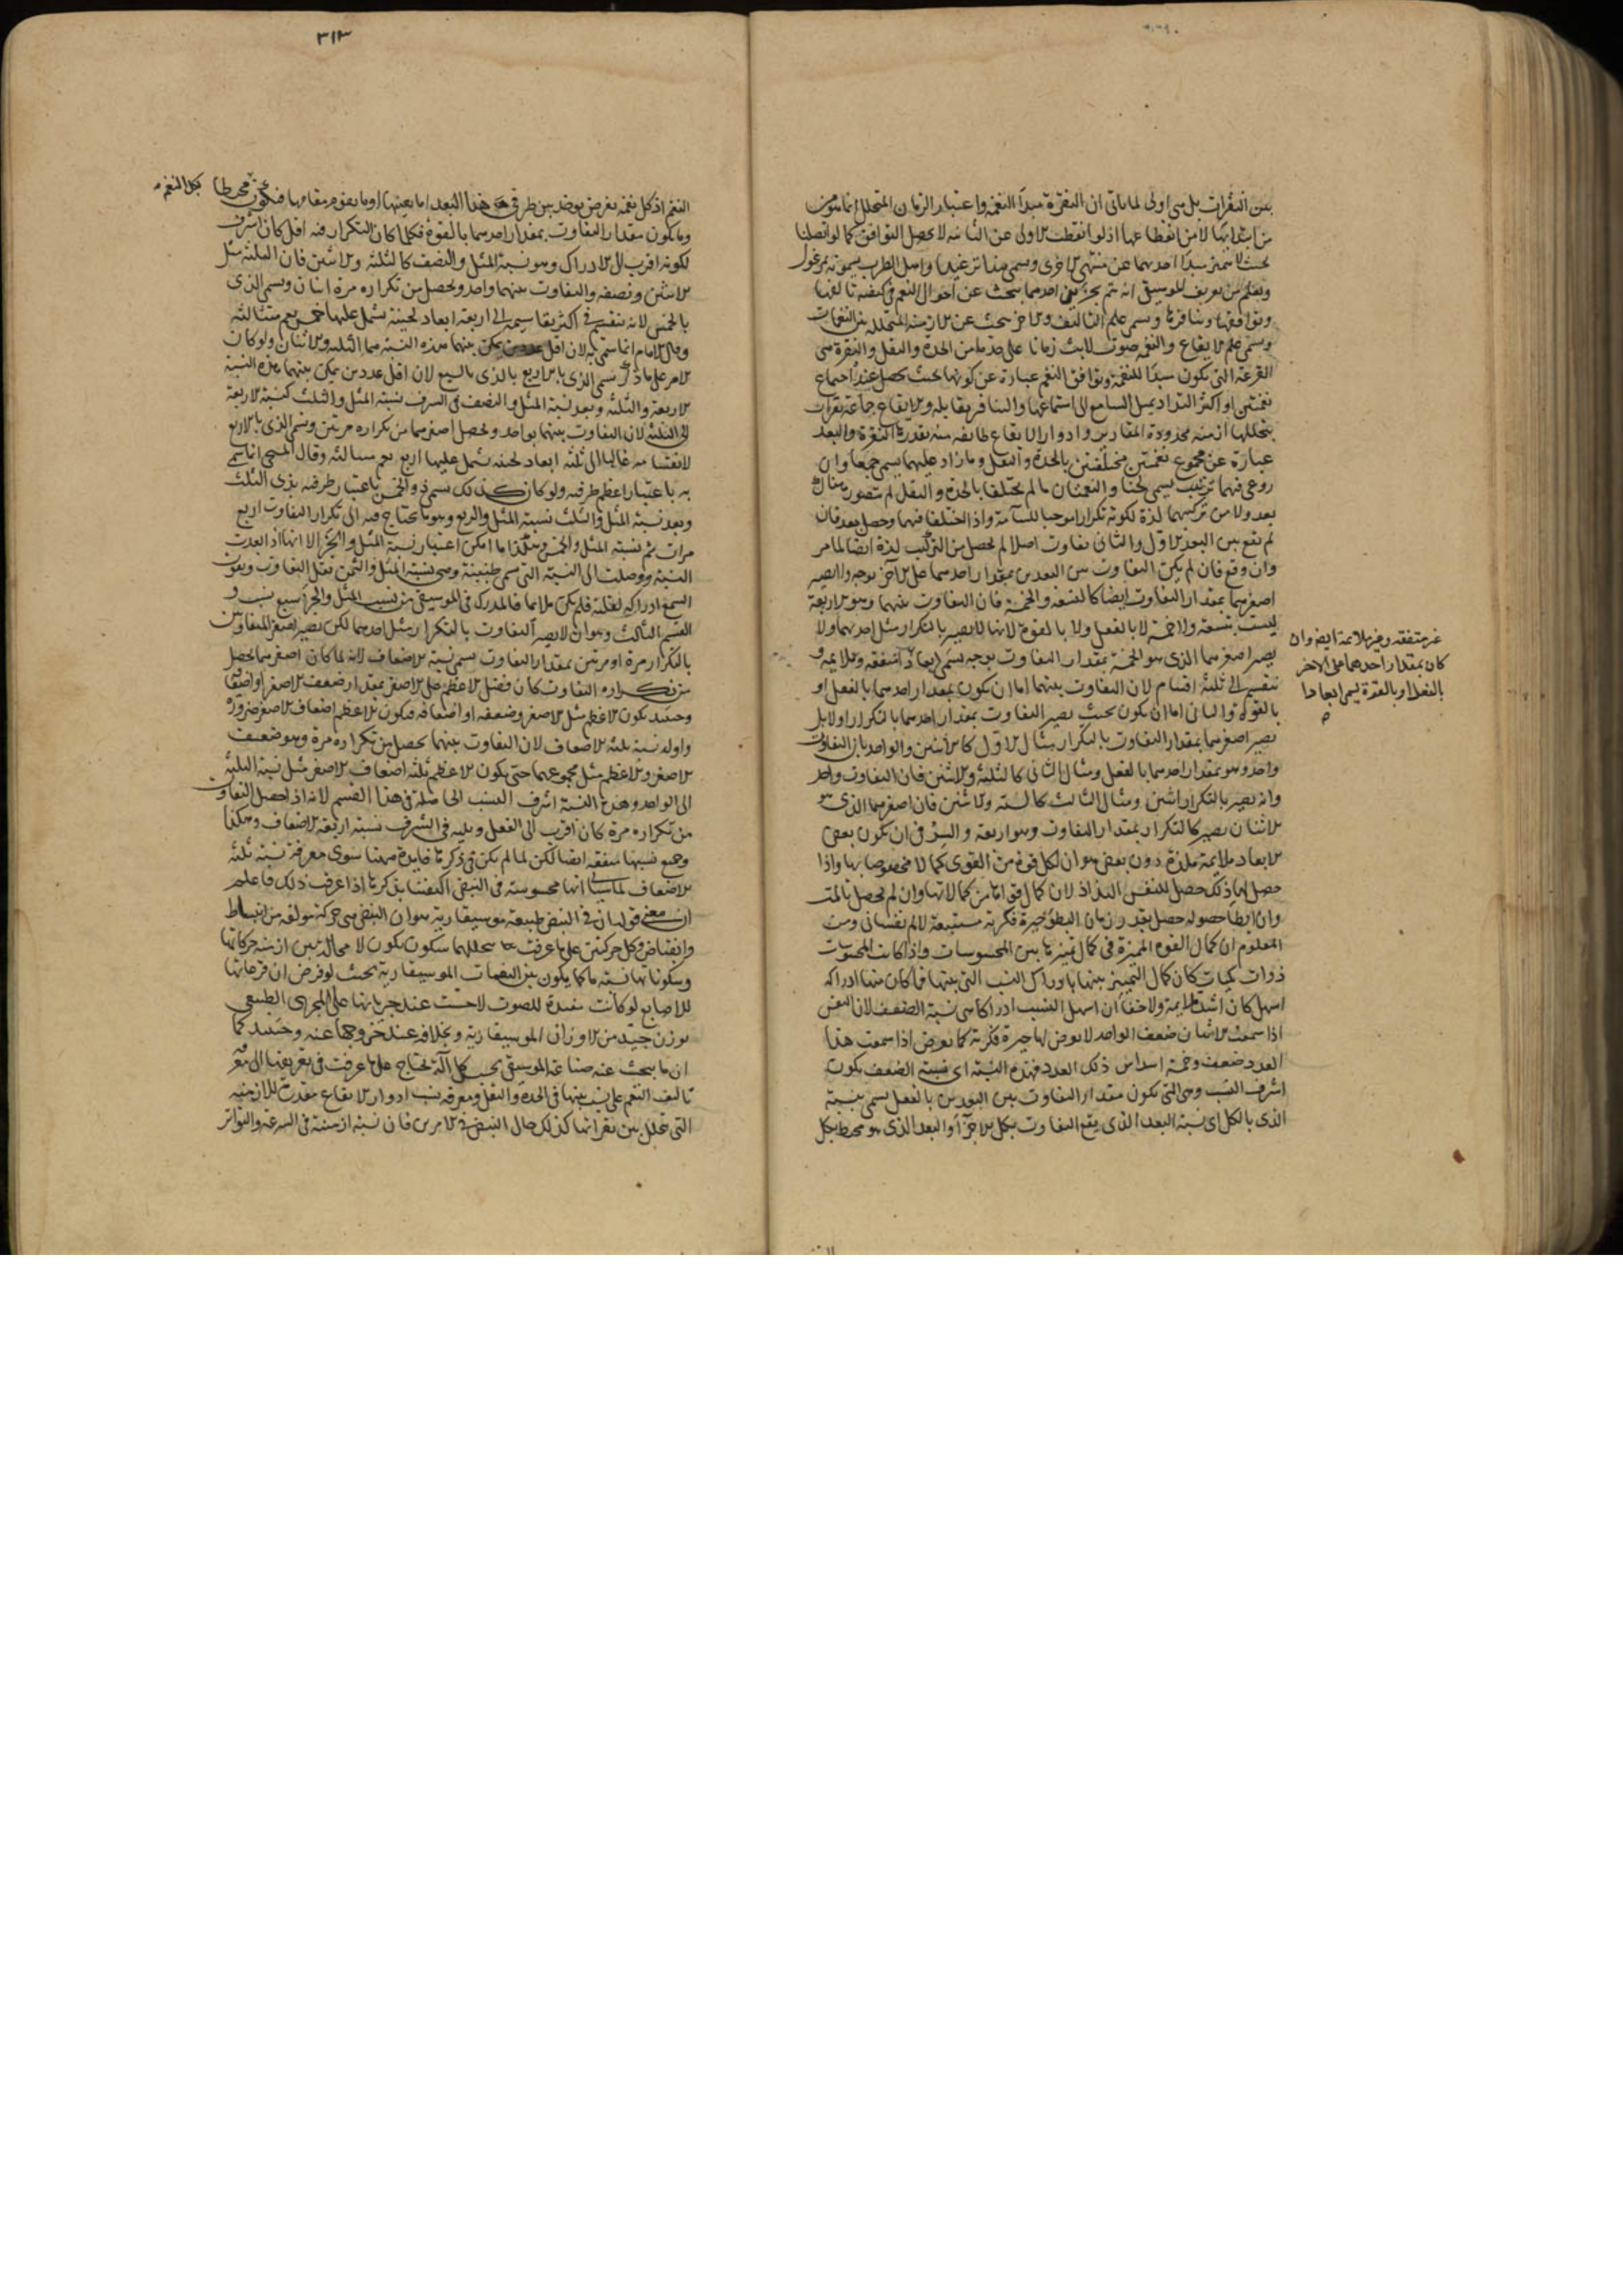 بين النقرات بل هي اولى لما ياتى ان النقرة مبدأ النغمة واعتبار الزمان المتخلل انما يكون
من ابتدائها لا من انقطاعها اذ لو انقطعت الاولى عن الثانية لا يحصل التوافق كما لو اتصلتا
بحيث لا يتميز مبدأ احديهما عن منتهى الاخرى ويسمى هذا ترعيدا واهل الطرب يسمونه مرغول
ويعلم من تعريف الموسيقى انه يتم بجزئين احدهما يبحث عن احوال النغم في كيفية تاليفها
وتوافقها وتنافرها ويسمى علم التاليف والاخر يبحث عن الازمنة المتخللة بين النغمات
ويسمى علم الايقاع والنغم صوت لابث زمانا على حد ما من الحدة والثقل والنقرة هي
القرعة التي تكون مبدأ للنغمة وتوافق النغم عبارة عن كونها بحيث يحصل عند اجتماع
نغمتين او اكثر التذاذ يميل السامع الى استماعها والتنافر يقابله والايقاع جماعة نقرات
يتخللها ازمنة محدودة المقادير وادوار الايقاع طائفة منه بقدر النقرة والبعد
عبارة عن مجموع نغمتين مختلفتين بالحدة والثقل وما زاد عليهما يسمى جمعا وان
روعى فيهما ترتيب يسمى لحنا والنغمتان ما لم يختلفا بالحدة والثقل لم يتصور هناك
بعد ولا من تركيبهما لذة لكونه تكرارا موجبا للسآمة واذا اختلفا فيهما وحصل بعد فان
لم يقع بين البعد الاول والثانى تفاوت اصلا لم يحصل من التركيب لذة ايضا لما مر
وان وقع فان لم يكن التفاوت بين البعدين بمقدار احدهما على الاخر بوجه ولا يصير
اصغرهما بمقدار التفاوت ايضا كالتسعة والخمسة فان التفاوت بينهما وهو الاربعة
ليست بتسعة ولا خمسة لا بالفعل ولا بالقوة لانها لا يصير بالتكرار مثل احدهما ولا
يصير اصغرهما الذى هو الخمسة بمقدار التفاوت بوجه يسمى ابعادا متفقة وملايمة و
غير متفقة وغير ملايمة ايضا وان
كان بمقدار احدهما على الاخر
بالفعل او بالقوة يسمى ابعادا
تنقسم الى ثلثة اقسام لان التفاوت بينهما اما ان يكون بمقدار احدهما بالفعل او
بالقوة والثانى اما ان يكون بحيث يصير التفاوت بمقدار احدهما بالتكرار او لا بل
يصير اصغرهما بمقدار التفاوت بالتكرار مثال الاول كالاثنين والواحد فان التفاوت
واحد وهو بمقدار احدهما بالفعل ومثال الثانى كالثلثة والاثنين فان التفاوت واحد
وانه يصير بالتكرار اثنين ومثال الثالث كالستة والاثنين فان اصغرهما الذى هو
الاثنان يصير كالتكرار بمقدار التفاوت وهو اربعة والسر في ان يكون بعض
الابعاد ملايمة ملذة دون بعض هو ان لكل قوة من القوى كمالا مخصوصا بها واذا
حصل لها ذلك حصل للنفس التذاذ لان كمال قواها من كمالاتها وان لم يحصل تالمت
وان ابطأ حصوله حصل بقدر زمان البطؤ حيرة فكرية مستتبعة لالم نفسانى ومن
المعلوم ان كمال القوة المميزة في كمال تميزها بين المحسوسات واذا كانت المحسوسات
ذوات كميات كان كمال التمييز بينها بادراك النسب التي بينها فما كان منها ادراكه
اسهل كان اشد ملايمة ولا خفا ان اسهل النسب ادراكا هي نسبة الضعف لان النفس
اذا سمعت الاثنان ضعف الواحد لا يعرض لها حيرة فكرية كما يعرض اذا سمعت هذا
العدد ضعف وخمسة اسداس ذلك العدد فهذه النسبة اى نسبة الضعف يكون
اشرف النسب وهي التي تكون مقدار التفاوت بين البعدين بالفعل يسمى بنسبة
الذى بالكل اى نسبة البعد الذى يقع التفاوت بكل الاجزآ والبعد الذى هو محيط بكل
٣١٣
النغم اذ كل نغمة تفرض يوخذ بين طرفي هذا البعد اما بعينها او ما يقوم مقامها فيكون محيطا بكل النغم
وما يكون مقدار التفاوت بمقدار احدهما بالقوة فكلما كان التكرار فيه اقل كان اشرف
لكونه اقرب الى الادراك وهو نسبة المثل والنصف كالثلثة والاثنين فان الثلثة مثل
الاثنين ونصفه والتفاوت بينهما واحد ويحصل من تكراره مرة اثنان ويسمى الذى
بالخمس لانه تنقسم في اكثر تقاسيمه الى اربعة ابعاد لحنية يشتمل عليها خمس نغم متتالية
وقال الامام انما سمى به لان اقل عددين يمكن بينهما هذه النسبة هما الثلثة والاثنان ولو كان
الامر على ما ذكر سمى الذى بالاربع بالذى بالسبع لان اقل عددين يمكن بينهما هذه النسبة
الاربعة والثلثة وبعد نسبة المثل والنصف في الشرف نسبة المثل والثلث كنسبة الاربعة
الى الثلثة لان التفاوت بينهما بواحد ويحصل اصغرهما من تكراره مرتين ويسمى الذى بالاربع
لانقسامه غالبا الى ثلثة ابعاد لحنية يشمل عليها اربع نغم متتالية وقال المسيحى انما سمى
به باعتبار اعظم طرفيه ولو كان كذلك يسمى ذو الخمس باعتبار طرفيه بذى الثلث
وبعد نسبة المثل والثلث نسبة المثل والربع وهو ما يحتاج فيه الى تكرار التفاوت اربع
مرات ثم نسبة المثل والخمس وهكذا ما امكن اعتبار نسبة المثل والجزء الا انها اذا بعدت
النسبة ووصلت الى النسبة التي تسمى طنينية وهي نسبة المثل والثمن يقل التفاوت ويفوت
السمع ادراكه لقلته فلم يكن ملايما فالمدرك في الموسيقى من نسب المثل والجزء سبع نسب و
القسم الثالث وهو ان لا يصير التفاوت بالتكرار مثل احدهما لكن يصير اصغر المتفاوتين
بالتكرار مرة او مرتين بمقدار التفاوت يسمى نسبة الاضعاف لانه لما كان اصغرهما يحصل
من تكراره التفاوت كان فضل الاعظم على الاصغر بمقدار ضعف الاصغر او اضعافه
وحينئذ يكون الاعظم مثل الاصغر وضعفه او اضعافه فيكون الاعظم اضعاف الاصغر ضرورة
واوله نسبة ثلثة الاضعاف لان التفاوت بينهما يحصل من تكراره مرة وهو ضعف
الاصغر والاعظم مثل مجموعهما حتى يكون الاعظم ثلثة اضعاف الاصغر مثل نسبة الثلثة
الى الواحد وهذه النسبة اشرف النسب الحاصلة في هذا القسم لانه اذا حصل التفاوت
من تكراره مرة كان اقرب الى الفعل ويليه في الشرف نسبة اربعة الاضعاف وهكذا
وجميع نسبها متفقة ايضا لكن لما لم يكن في ذكرها فايدة هيهنا سوى معرفة نسبة ثلثة
الاضعاف لما سياتى انها محسوسة في النبض اكتفينا بذكرها اذا عرفت ذلك فاعلم
ان معنى قولنا في النبض طبيعة موسيقارية هو ان النبض هي حركة مولفة من انبساط
وانقباض وكل حركتين على ما عرفت يتخللهما سكون يكون لا محالة بين ازمنة حركاتها
وسكوناتها نسبة ما كما يكون بين النغمات الموسيقارية بحيث لو فرض ان قرعاتها
للاصابع لو كانت مفيدة للصوت لاحست عند جريانها على المجرى الطبيعى
بوزن جيد من الاوزان الموسيقارية وبخلافه عند خروجها عنه وحينئذ كما
ان ما يبحث عنه صناعة الموسيقى بحسب كل آلة يحتاج على ما عرفت في تعريفها الى معرفة
تاليف النغم على نسب بينها في الحدة والثقل ومعرفة نسب ادوار الايقاع مقدرة للازمنة
التي تتخلل بين نقراتها كذلك حال النبض في الامرين فان نسبة ازمنته في السرعة والتواتر